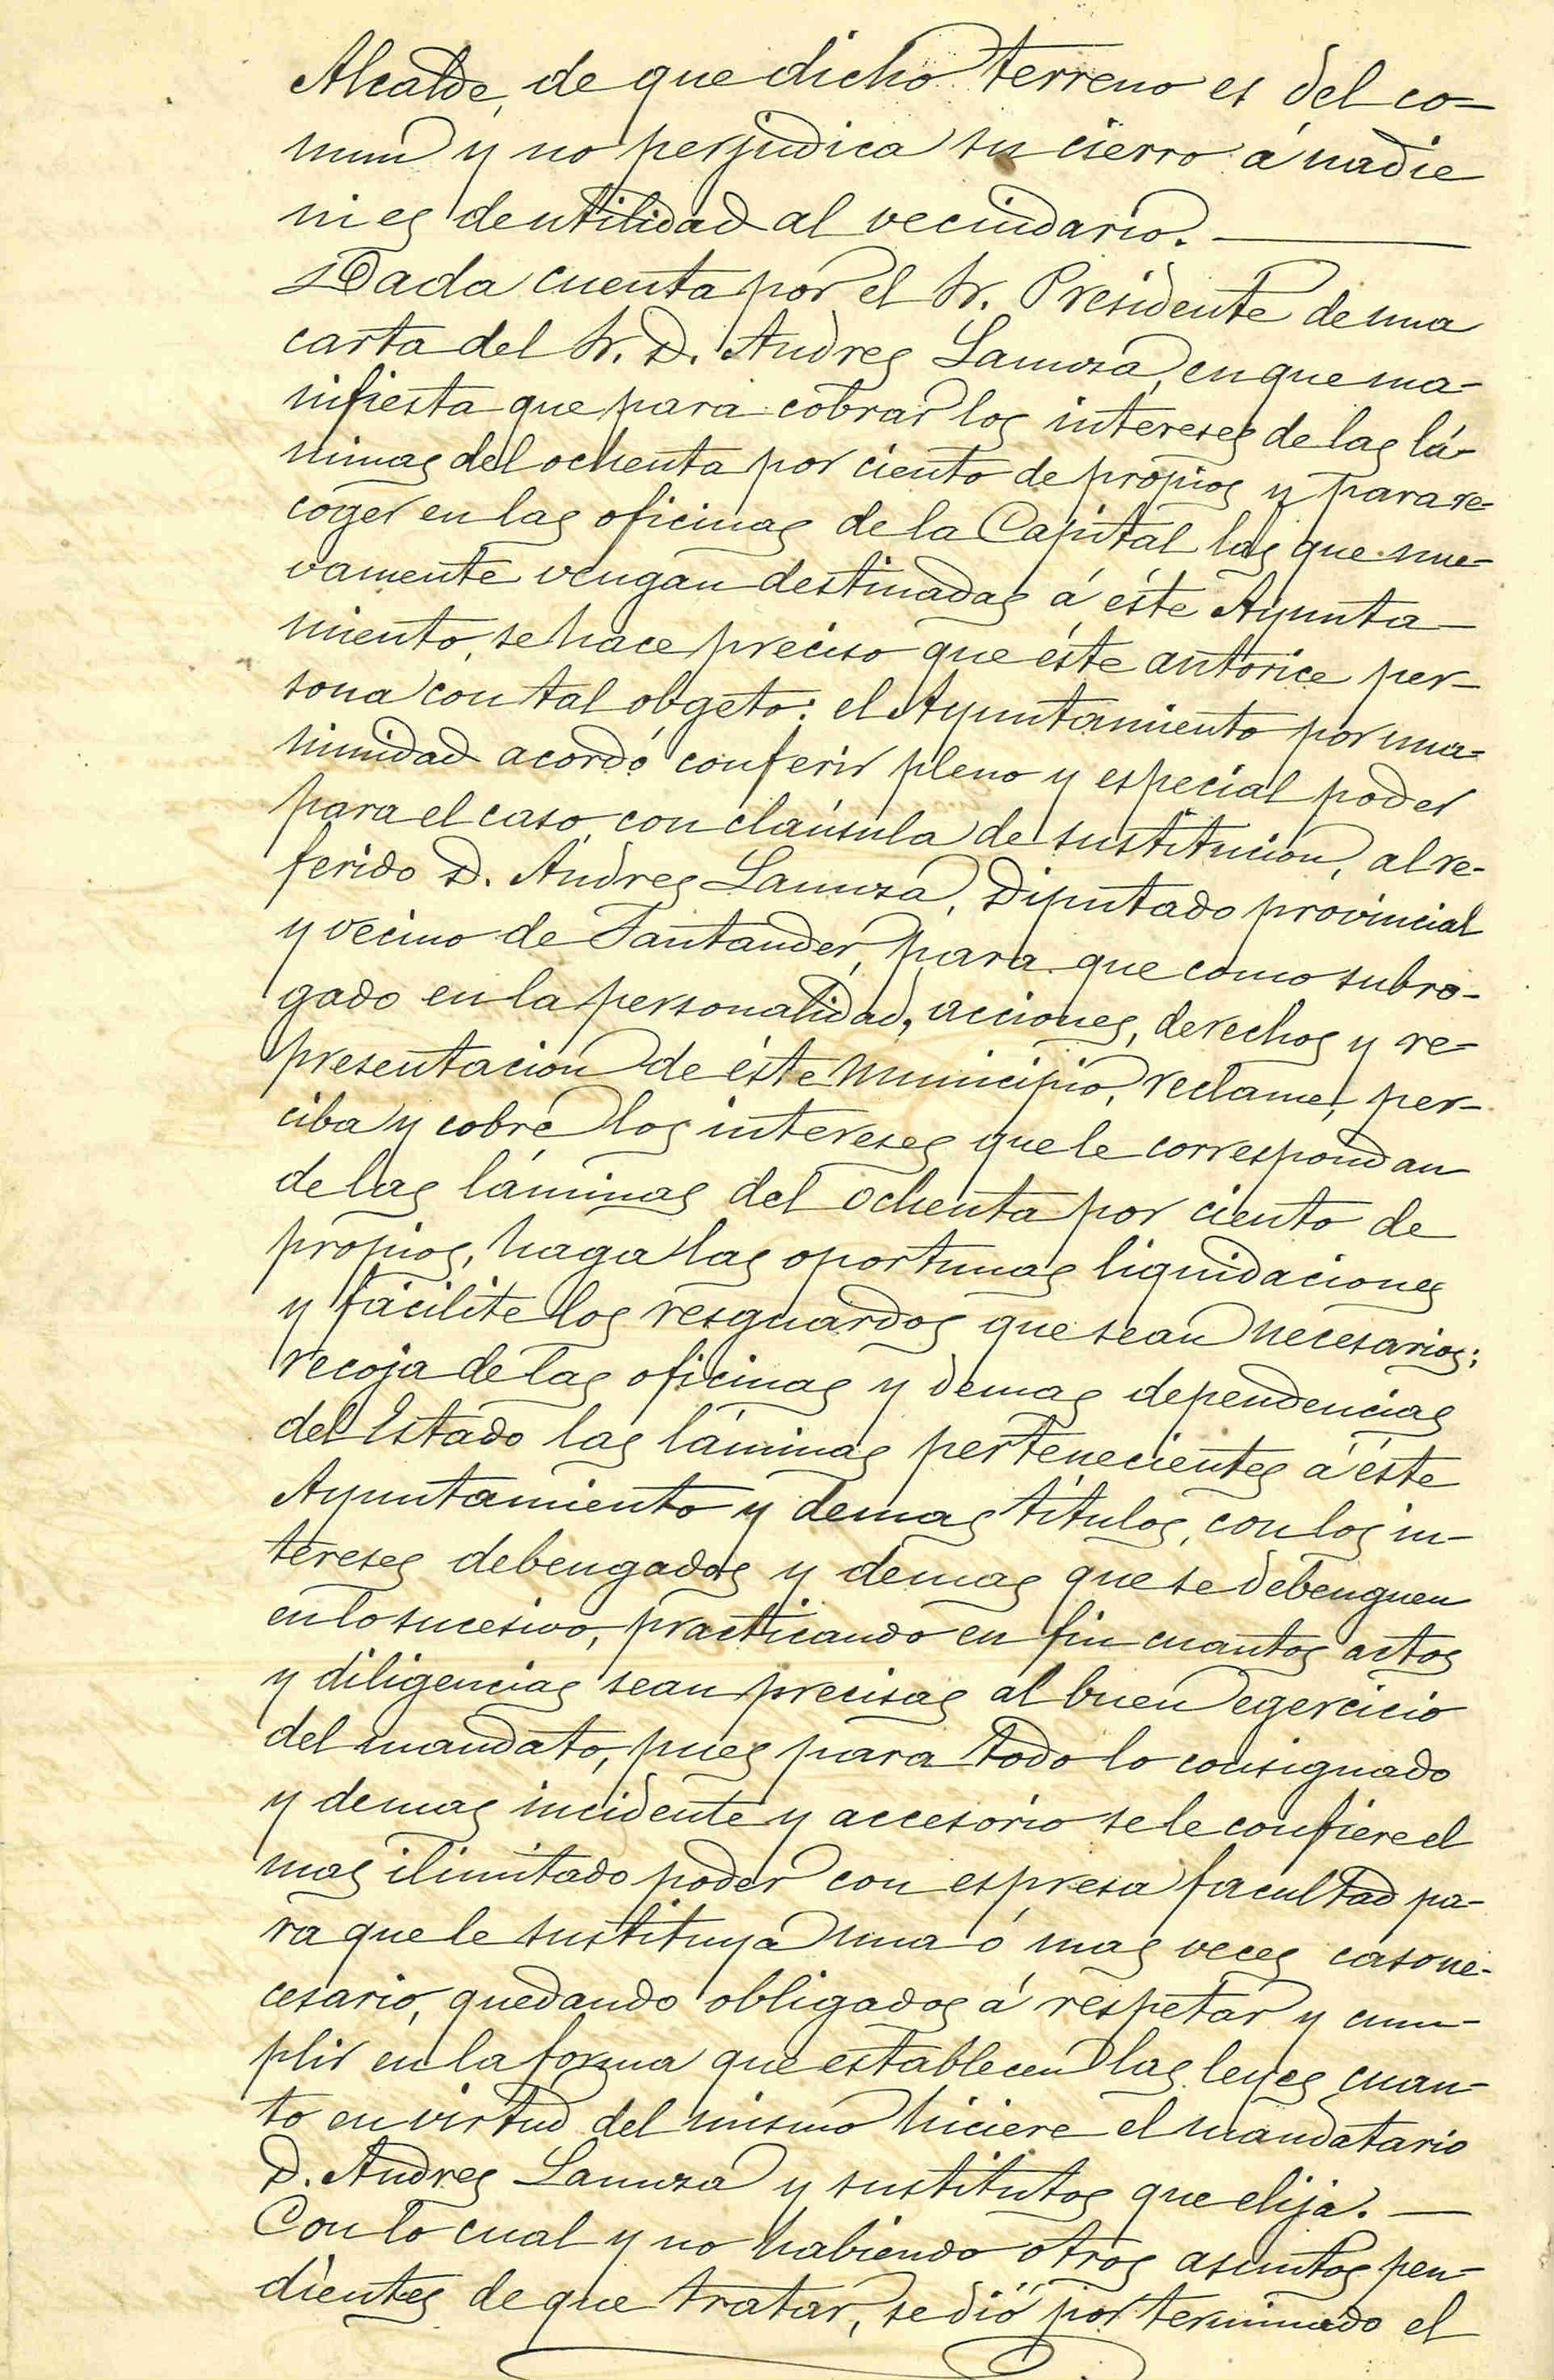 Alcalde, de que dicho terreno es del co-
mun y no perjudica su cierro á nadie
ni es de utilidad al vecindario.
Dada cuenta por el Sr. Presidente de una
carta del Sr. D. Andres Lanuza, en que ma-
nifiesta que para cobrar los intereses de las lá-
minas del ochenta por ciento de propios y para re-
coger en las oficinas de la Capital las que nue-
vamente vengan destinadas á éste Ayunta-
miento, se hace preciso que éste autorice per-
sona con tal obgeto: el Ayuntamiento por una-
nimidad acordó conferir pleno y especial poder
para el caso, con claúsula de sustitucion, al re-
ferido D. Andres Lanuza, Diputado provincial
y vecino de Santander, para que como subro-
gado en la personalidad, acciones, derechos y re-
presentacion de éste Municipio, reclame, per-
ciba y cobre los intereses que le correspondan
de las láminas del ochenta por ciento de
propios, haga las oportunas liquidaciones
y facilite los resguardos que sean necesarios;
recoja de las oficinas y demas dependencias
del Estado las láminas pertenecientes á éste
Ayuntamiento y demas titulos, con los in-
tereses debengados y demas que se debenguen
en lo sucesivo, practicando en fin cuantos actos
y diligencias sean precisas al buen egercicio
del mandato, pues para todo lo consignado
y demas incidente y accesorio se le confiere el
mas ilimitado poder con espresa facultad pa-
ra que le sustituya una ó mas veces caso ne-
cesario, quedando obligados á respetar y cum-
plir en la forma que establecen las leyes cuan-
to en virtud del mismo hiciere el mandatario
D. Andres Lanuza y sustitutos que elija.
Con lo cual y no habiendo otros asuntos pen-
dientes de que tratar, se dió por terminado el